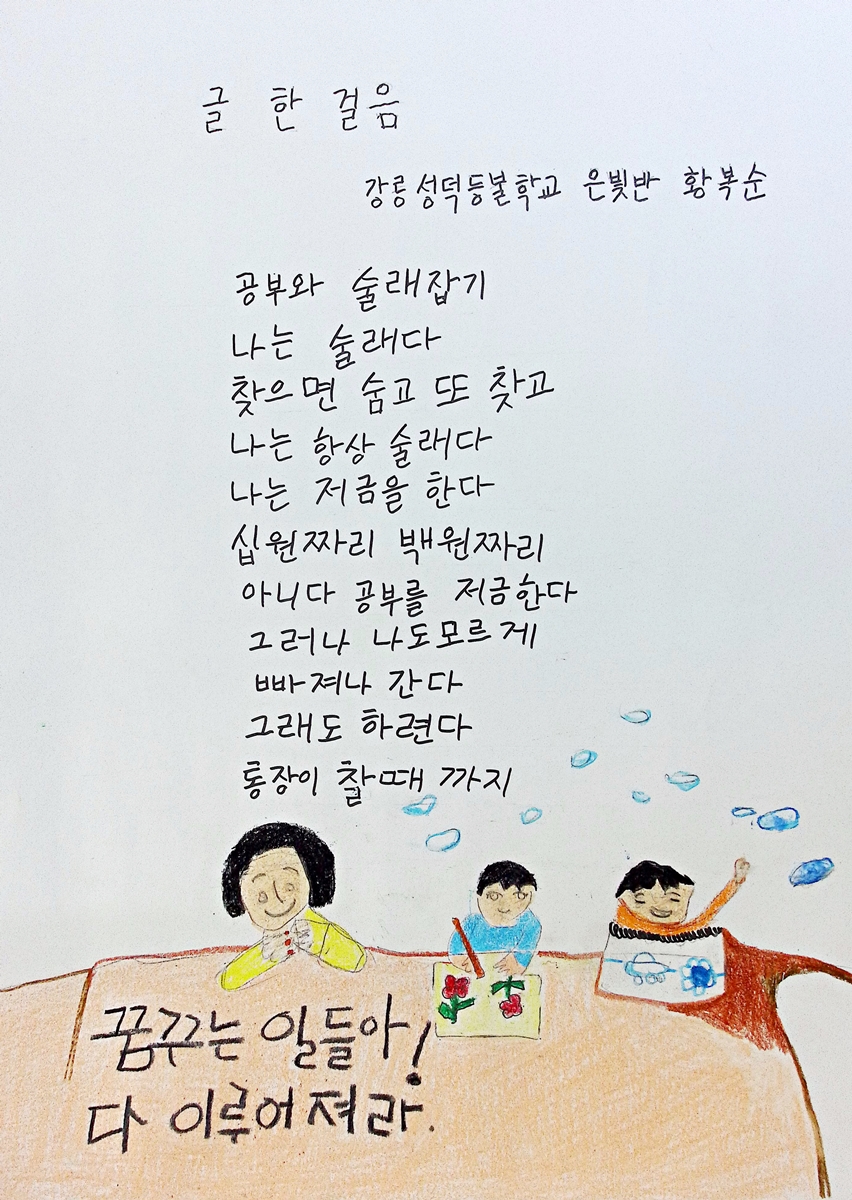 글 한 걸음
강릉성덕등불학교 은빛반 황복순
공부와 술래잡기
나는 술래다
찾으면 숨고 또 찾고
나는 항상 술래다
나는 저금을 한다
십원짜리 백원짜리
아니다 공부를 저금한다
그러나 나도모르게
빠져나 간다
그래도 하련다
통장이 찰때 까지
꿈꾸는 일들아!
다 이루어져라.